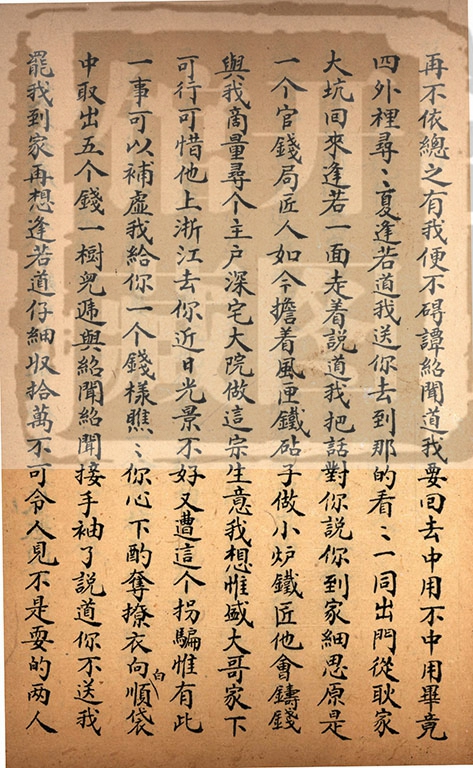 再不依總之有我便不碍譚紹聞道我要囬去中用不中用畢竟
四外裡尋〻夏逢若道我送你去到那的看〻一同出門從耿家
大坑囬來逢若一面走着說道我把話對你說你到家細思原是
一个官錢局匠人如今擔着風匣鐵砧子做小炉鐵匠他會鑄錢
與我商量尋个主户深宅大院做這宗生意我想惟盛大哥家下
可行可惜他上浙江去你近日光景不好又遭這个拐騙惟有此
一事可以補虛我給你一个錢樣瞧〻你心下酌奪撩衣向順白袋
中取出五个錢一樹兒逓與紹聞紹聞接手袖了說道你不送我
罷我到家再想逢若道仔細收拾萬不可令人見不是耍的两人